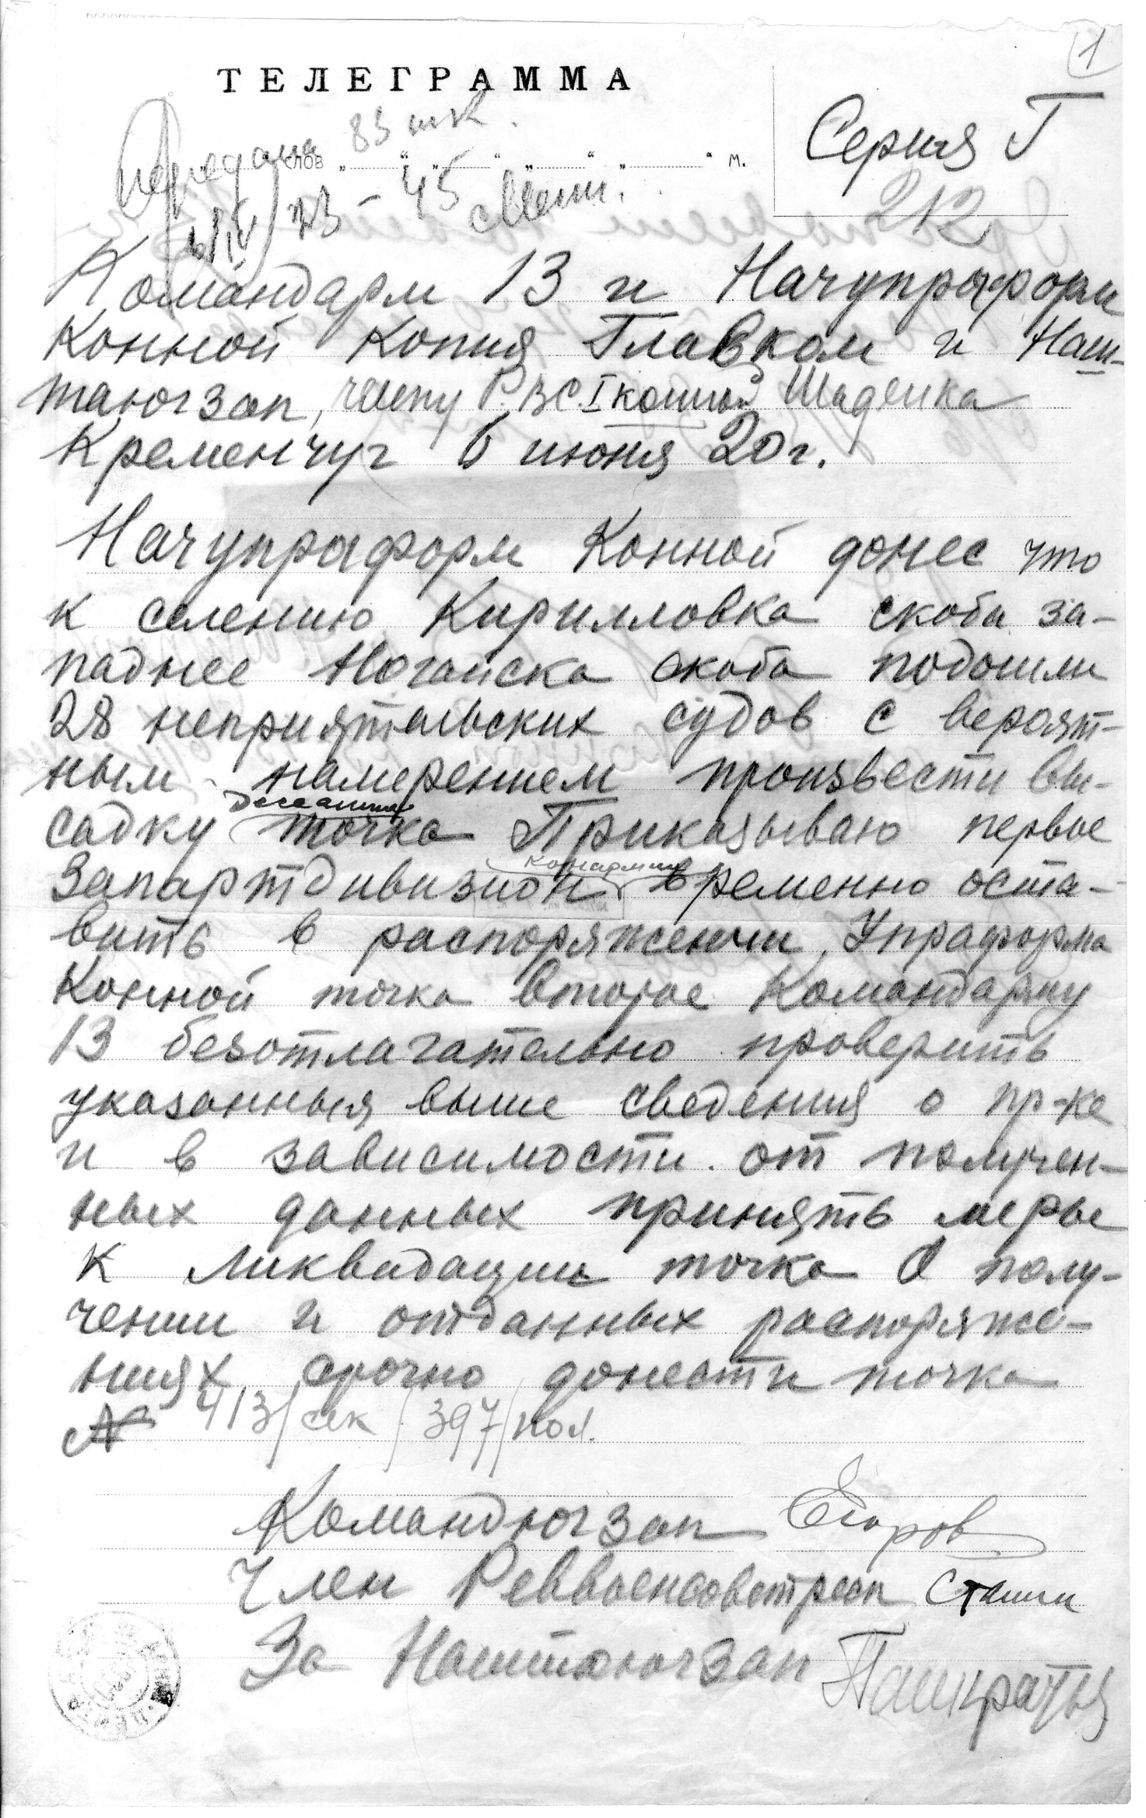 1
ТЕЛЕГРАММА
Серия Г
Передана 83 шк.
слов „ “ „ “ „ “ „ “ м.
23-45
212
Командарм 13 и Начупраформ
Конной Копия Главком и Наш-
таюгзап, члену Р.В.С. I конной Щаденка
Кременчуг 6 июня 20 г.
Начупраформ Конной донес что
к селению Кирилловка скоба за-
паднее Ногайска скоба подошли
28 неприятельских судов с вероят-
ным намерением произвести вы-
десанта
садку точка Приказываю первое
Конармии
Запартдивизион временно оста-
вить в распоряжении Упраформа
Конной точка второе Командарму
13 безотлагательно проверить
указанныя выше сведения о пр-ке
и в зависимости от получен-
ных данных принять меры
к ликвидации точка О полу-
чении и отданных распоряже-
ниях срочно донести точка
№ 413/сек/397/пол.
Командюгзап Егоров
Член Реввоенсовстреоп Сталин
За Наштаюгзап Панкратьев